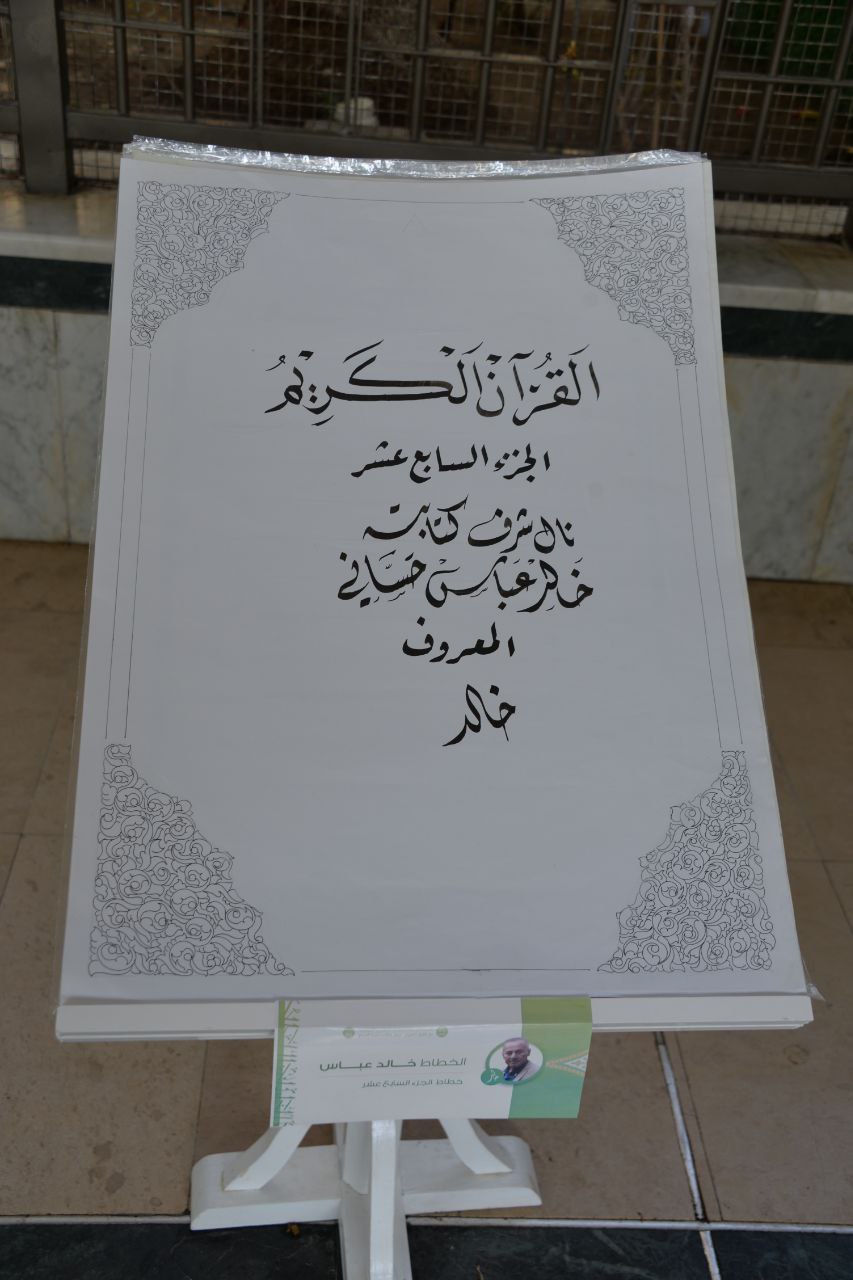 القرآن الكريم
الجزء السابع عشر
نال شرف كتابته
خالد عباس حساني
المعروف
خالد
الخطاط خالد عباس
خطاط الجزء السابع عشر